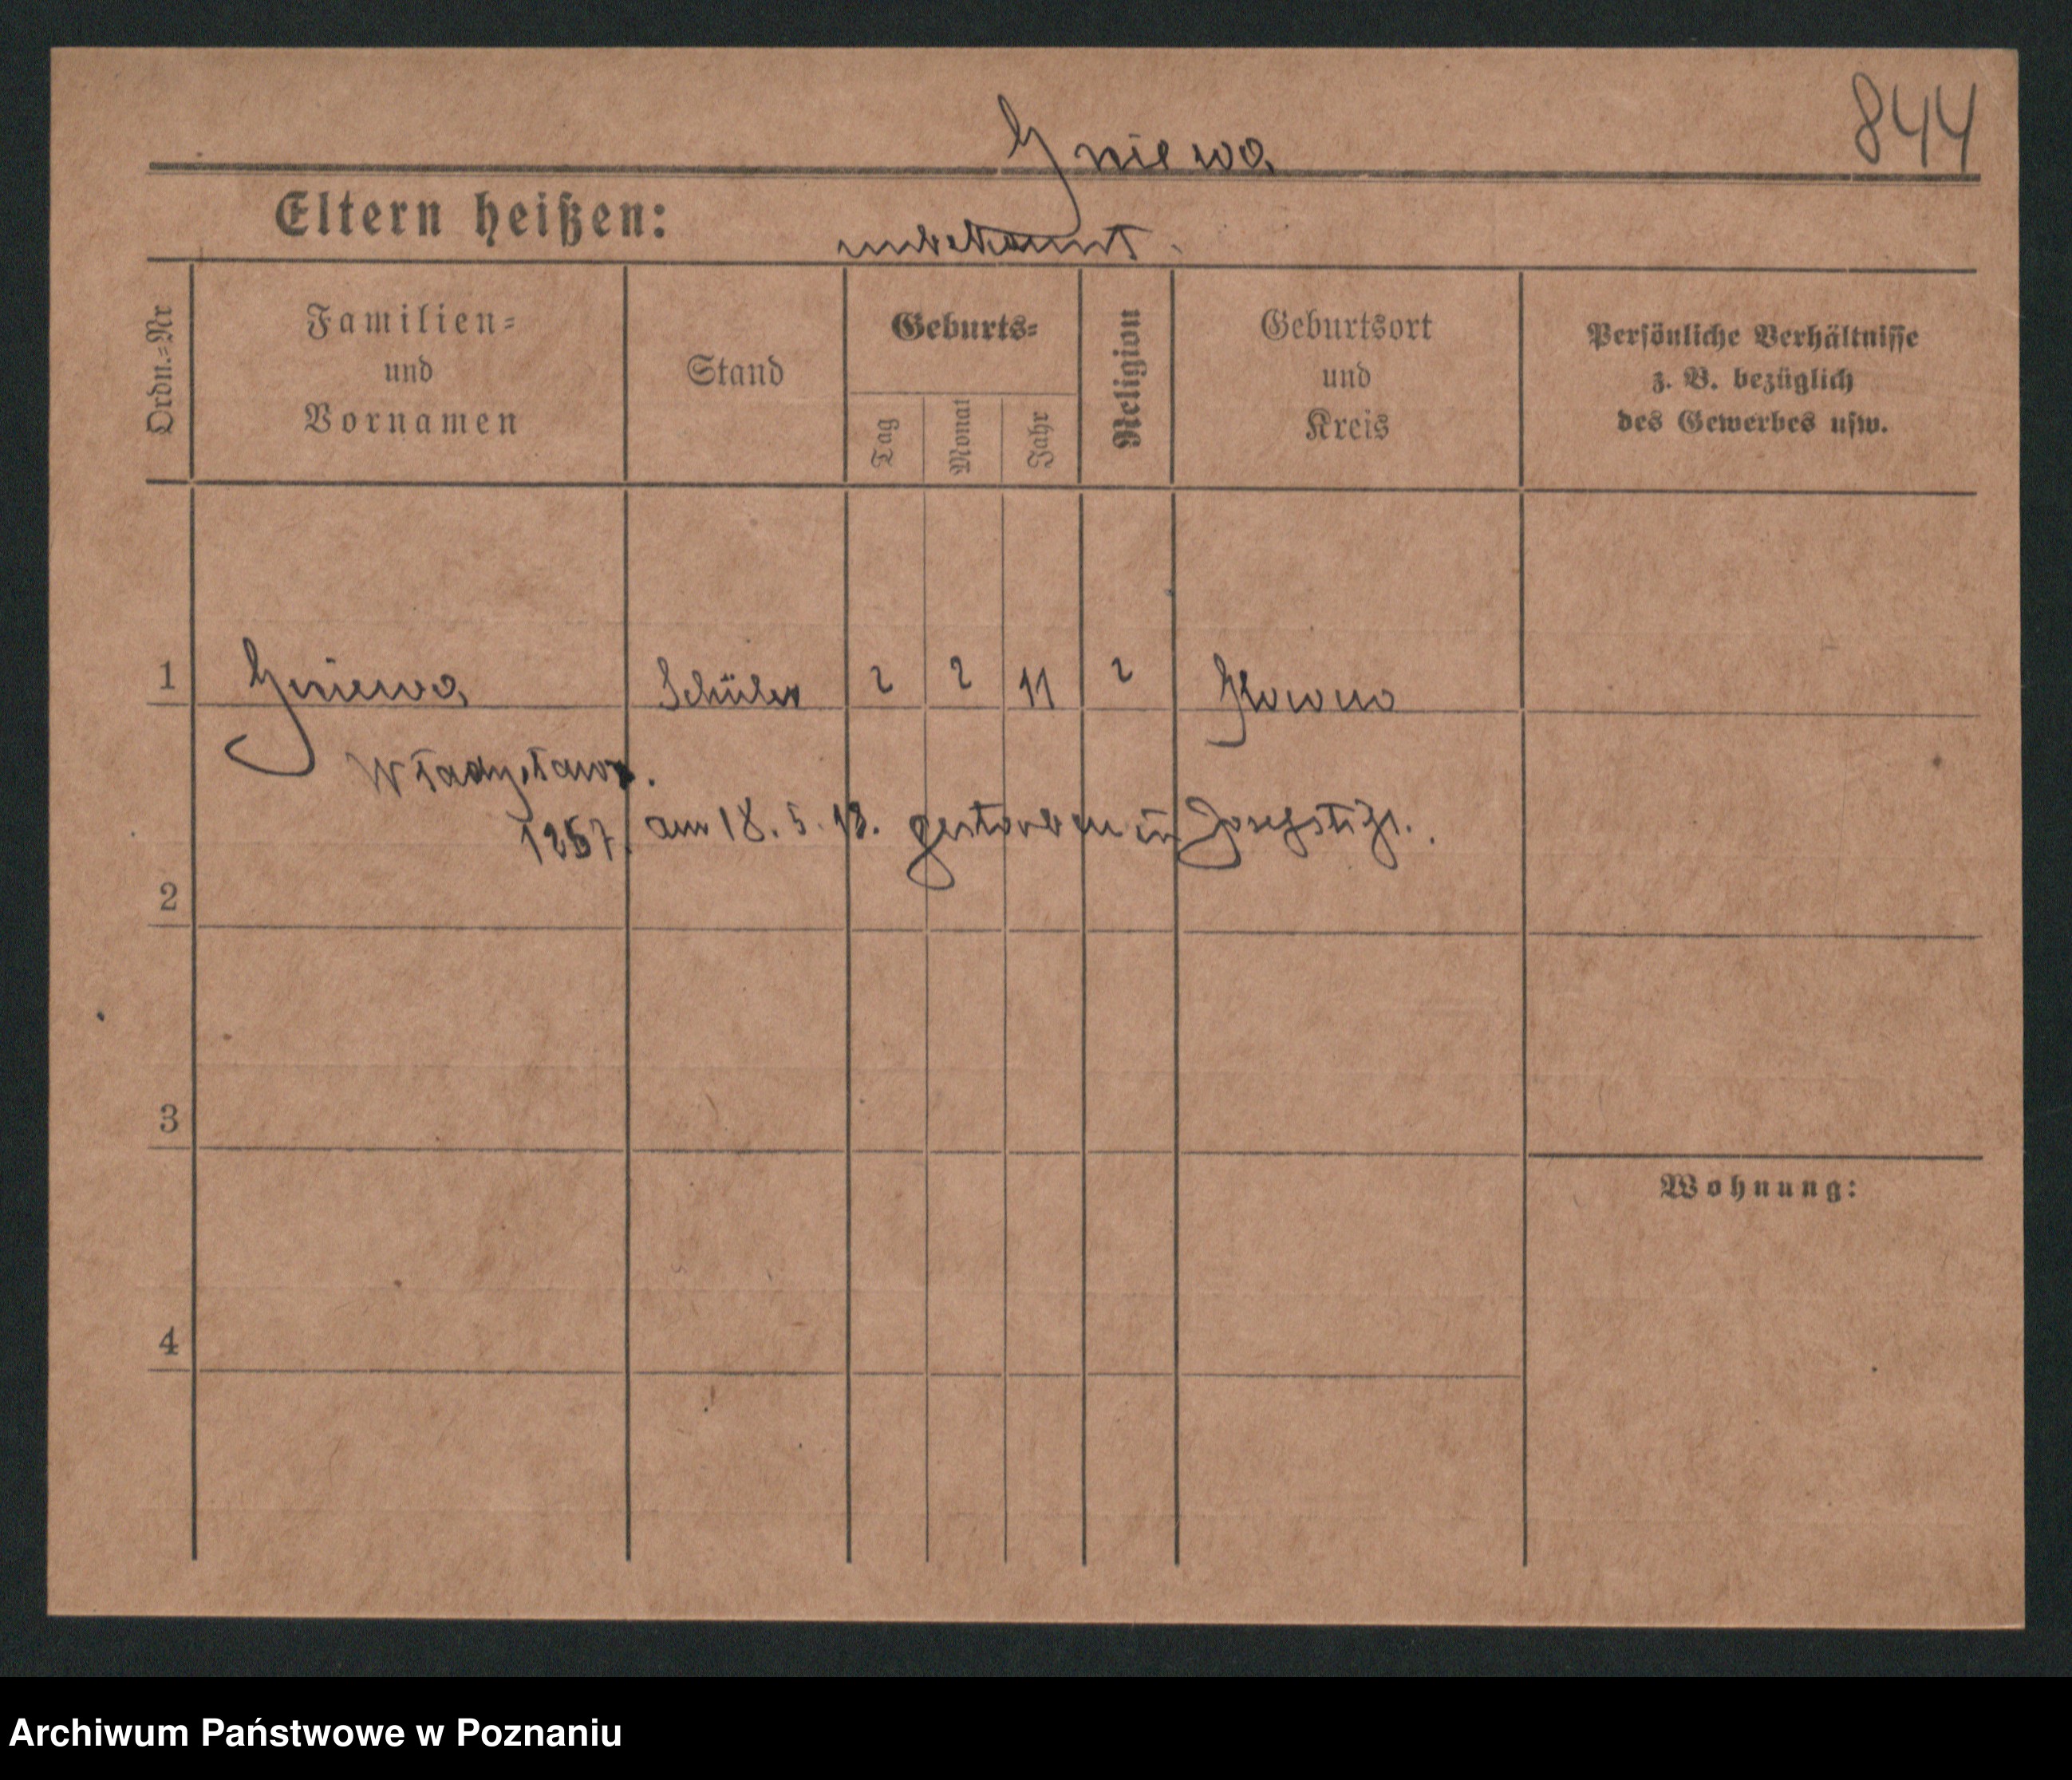 844
Gniewa
Eltern heißen: unbekannt.
Ordn.=Nr
Familien=
und
Vornamen
Stand
Geburts=
Tag
Monat
Jahr
Religion
Geburtsort
und
Kreis
Persönliche Verhältnisse
z. B. bezüglich
des Gewerbes usw.
1 Gniewa Schüler 2 2 11 2 Glowno
Władysława.
1257. am 18. 5. 13. gestorben in
2
3
Wohnung:
4
Archiwum Państwowe w Poznaniu